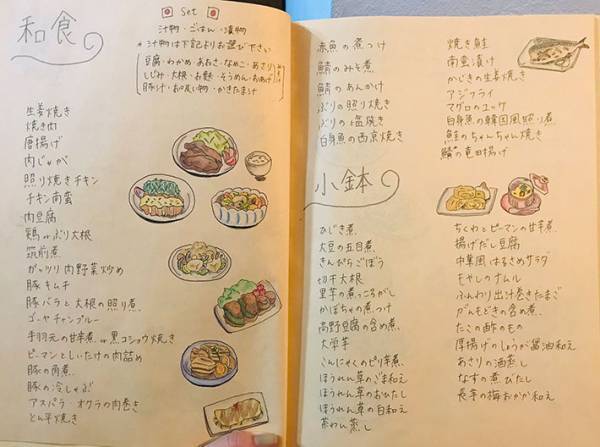 和食
Set
汁物・ごはん・漬物
*汁物は下記よりお選び下さい
豆腐・わかめ・あおさ・なめこ・あさり
しじみ・大根・お麩・そうめん・おあげ
豚汁・お吸い物・かきたま汁
生姜焼き
焼き肉
唐揚げ
肉じゃが
照り焼きチキン
チキン南蛮
肉豆腐
鶏orぶり大根
筑前煮
ガッツリ肉野菜炒め
豚キムチ
豚バラと大根の照り煮
ゴーヤチャンプルー
手羽元の甘辛煮or黒コショウ焼き
ピーマンとしいたけの肉詰め
豚の角煮
豚の冷しゃぶ
アスパラ・オクラの肉巻き
とん平焼き
赤魚の煮つけ
鯖のみそ煮
鯖のあんかけ
ぶりの照り焼き
ぶりの塩焼き
白身魚の西京焼き
焼き鮭
南蛮漬け
かじきの生姜焼き
アジフライ
マグロのユッケ
白身魚の韓国風照り煮
鮭のちゃんちゃん焼き
鯖の竜田揚げ
小鉢
ひじき煮
大豆の五目煮
きんぴらごぼう
切干大根
里芋の煮っころがし
かぼちゃの煮つけ
高野豆腐の含め煮
大学芋
こんにゃくのピリ辛煮
ほうれん草のごま和え
ほうれん草のおひたし
ほうれん草の白和え
茶わん蒸し
ちくわとピーマンの甘辛煮
揚げだし豆腐
中華風はるさめサラダ
もやしのナムル
ふんわり出汁巻きたまご
がんもどきの含め煮
たこの酢のもの
厚揚げのしょうが醤油和え
あさりの酒蒸し
なすの煮びたし
長芋の梅おかか和え